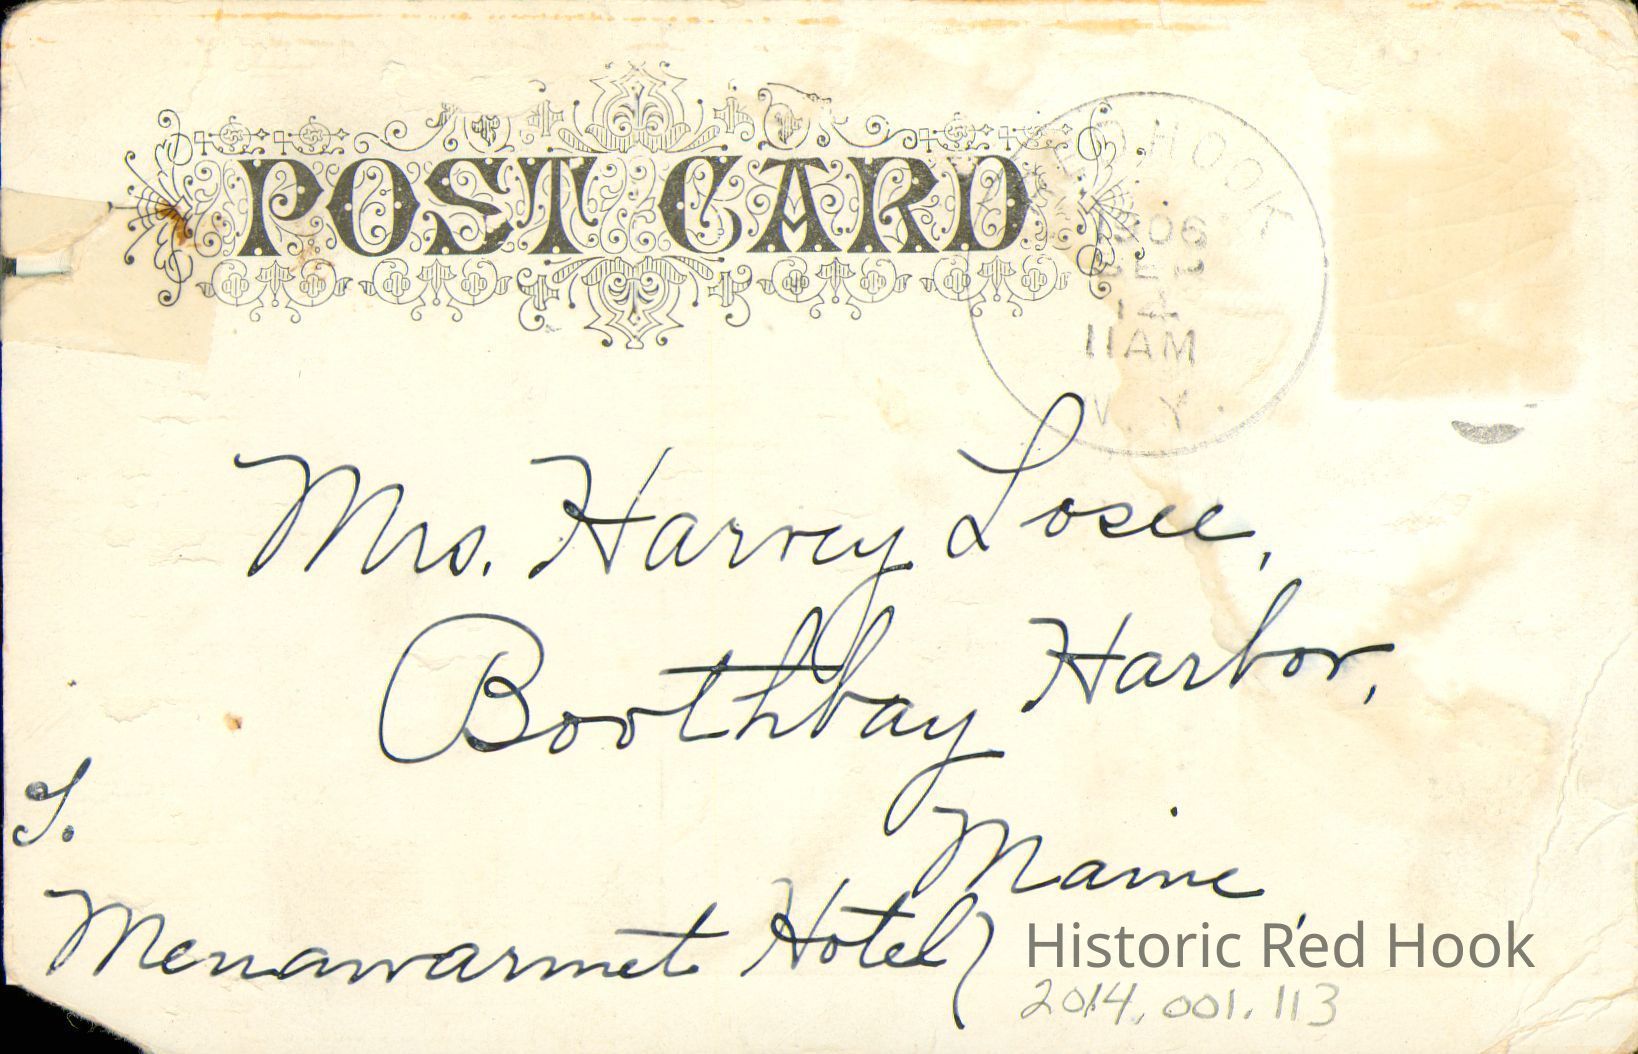 POST CARD
RED HOOK
1906
SEP
14
11 AM
N.Y.
Mrs. Harvey Losee,
Boothbay Harbor,
Maine,
Menawarmet Hotel
Historic Red Hook
2014.001.113